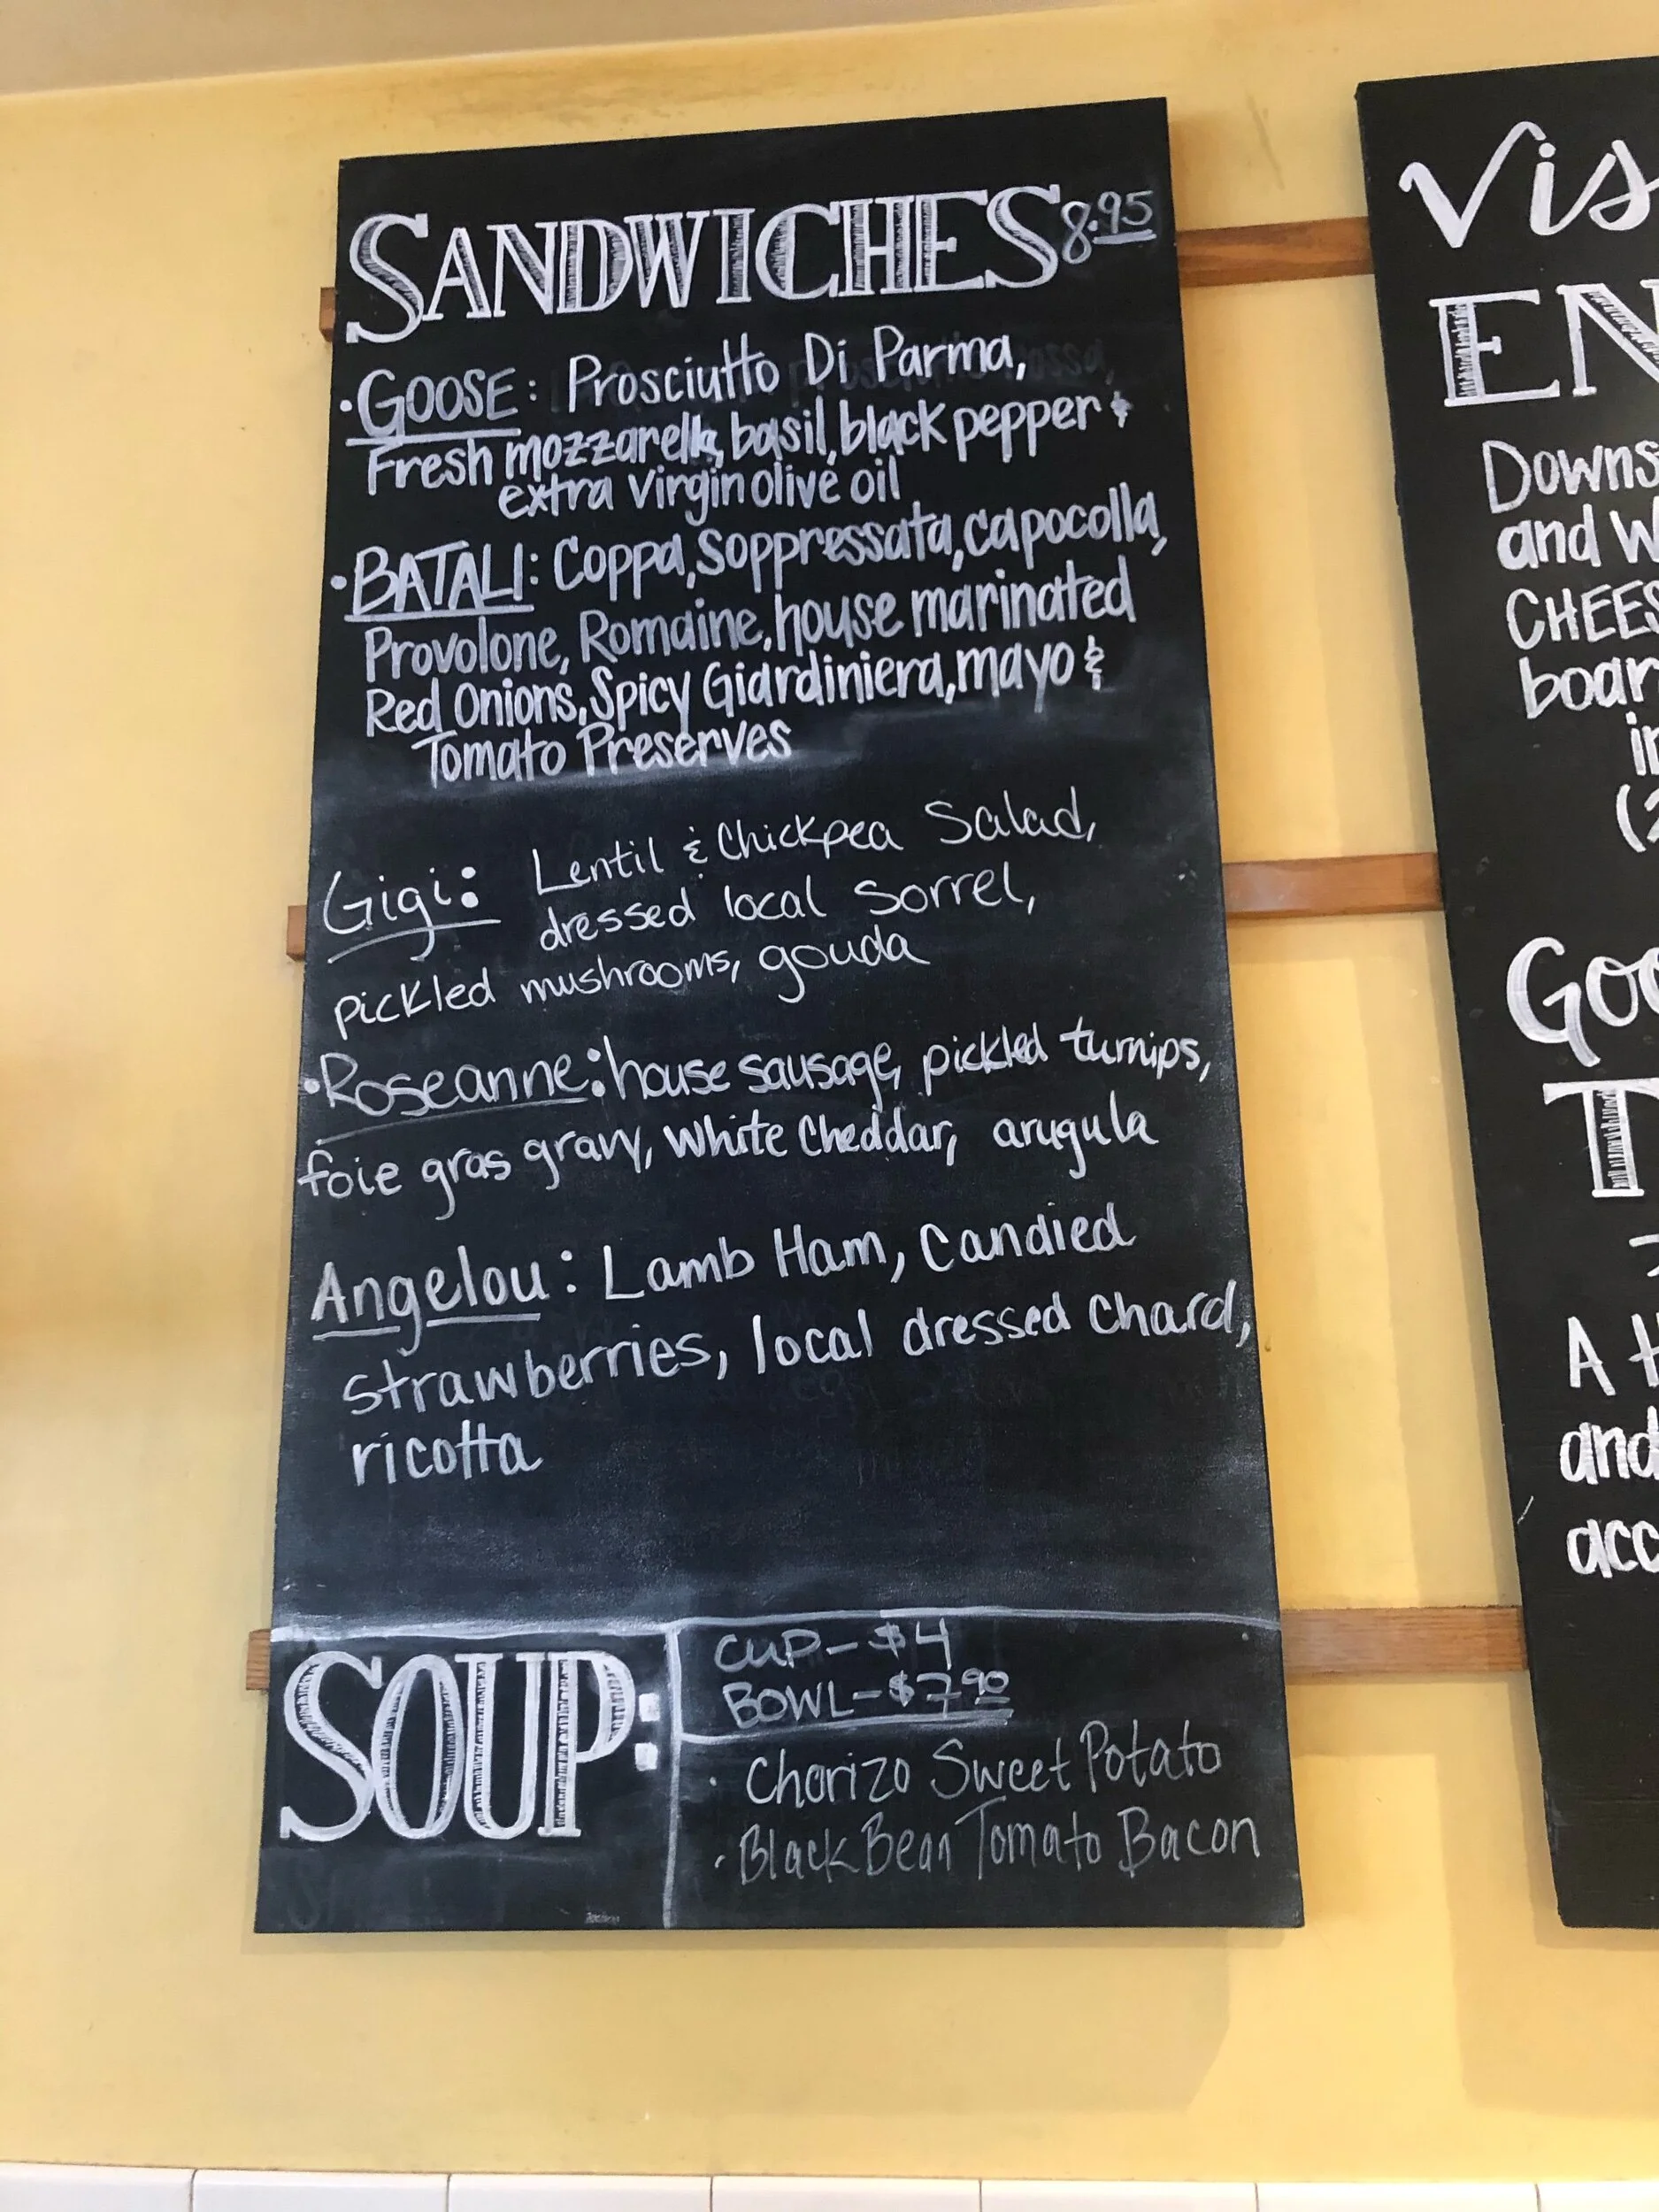 SANDWICHES 8.95
• GOOSE: Prosciutto Di Parma,
Fresh mozzarella, basil, black pepper &
extra virgin olive oil
• BATALI: Coppa, Soppressata, capocolla,
Provolone, Romaine, house marinated
Red Onions, Spicy Giardiniera, mayo &
Tomato Preserves
Gigi: Lentil & Chickpea Salad,
dressed local Sorrel,
pickled mushrooms, gouda
• Roseanne: house sausage, pickled turnips,
foie gras gravy, white Cheddar, arugula
Angelou: Lamb Ham, Candied
strawberries, local dressed Chard,
ricotta
SOUP:
CUP - $4
BOWL - $7.90
• Chorizo Sweet Potato
• Black Bean Tomato Bacon
Vis
EN
Downs
and w
CHEES
boar
in
(2
Goo
T
A th
and
acc